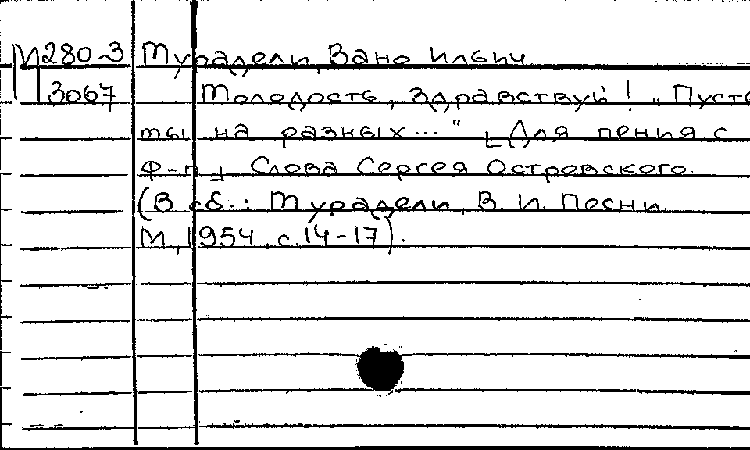 М280-3 Мурадели, Вано Ильич
П3067 Молодость, здравствуй! „Пусть
ты на разных..." [Для пения с
ф-п]. Слова Сергея Островского.
(В сб.: Мурадели, В. И. Песни
М, 1954, с. 14-17).